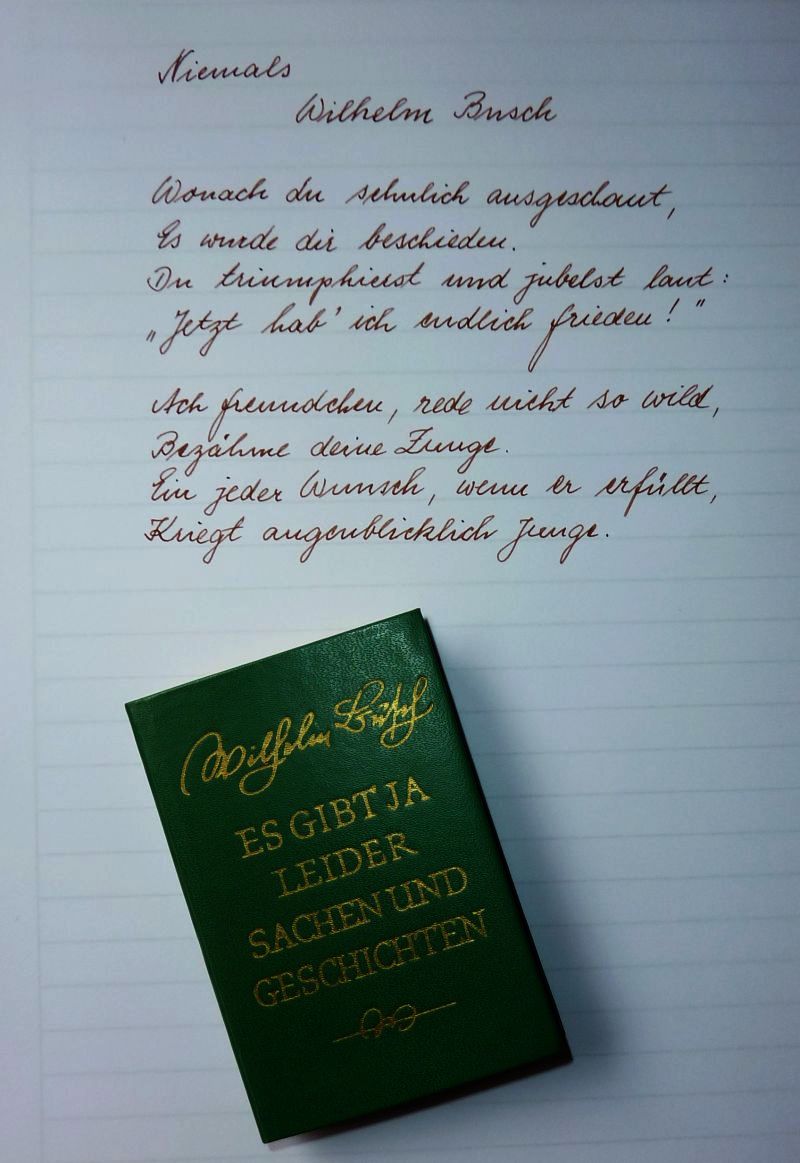 Niemals
Wilhelm Busch
Wonach du sehnlich ausgeschaut,
Es wurde dir beschieden.
Du triumphierst und jubelst laut:
„Jetzt hab' ich endlich frieden!"
Ach freundchen, rede nicht so wild,
Bezähme deine Zunge.
Ein jeder Wunsch, wenn er erfüllt,
Kriegt augenblicklich Junge.
Wilhelm Busch
ES GIBT JA
LEIDER
SACHEN UND
GESCHICHTEN